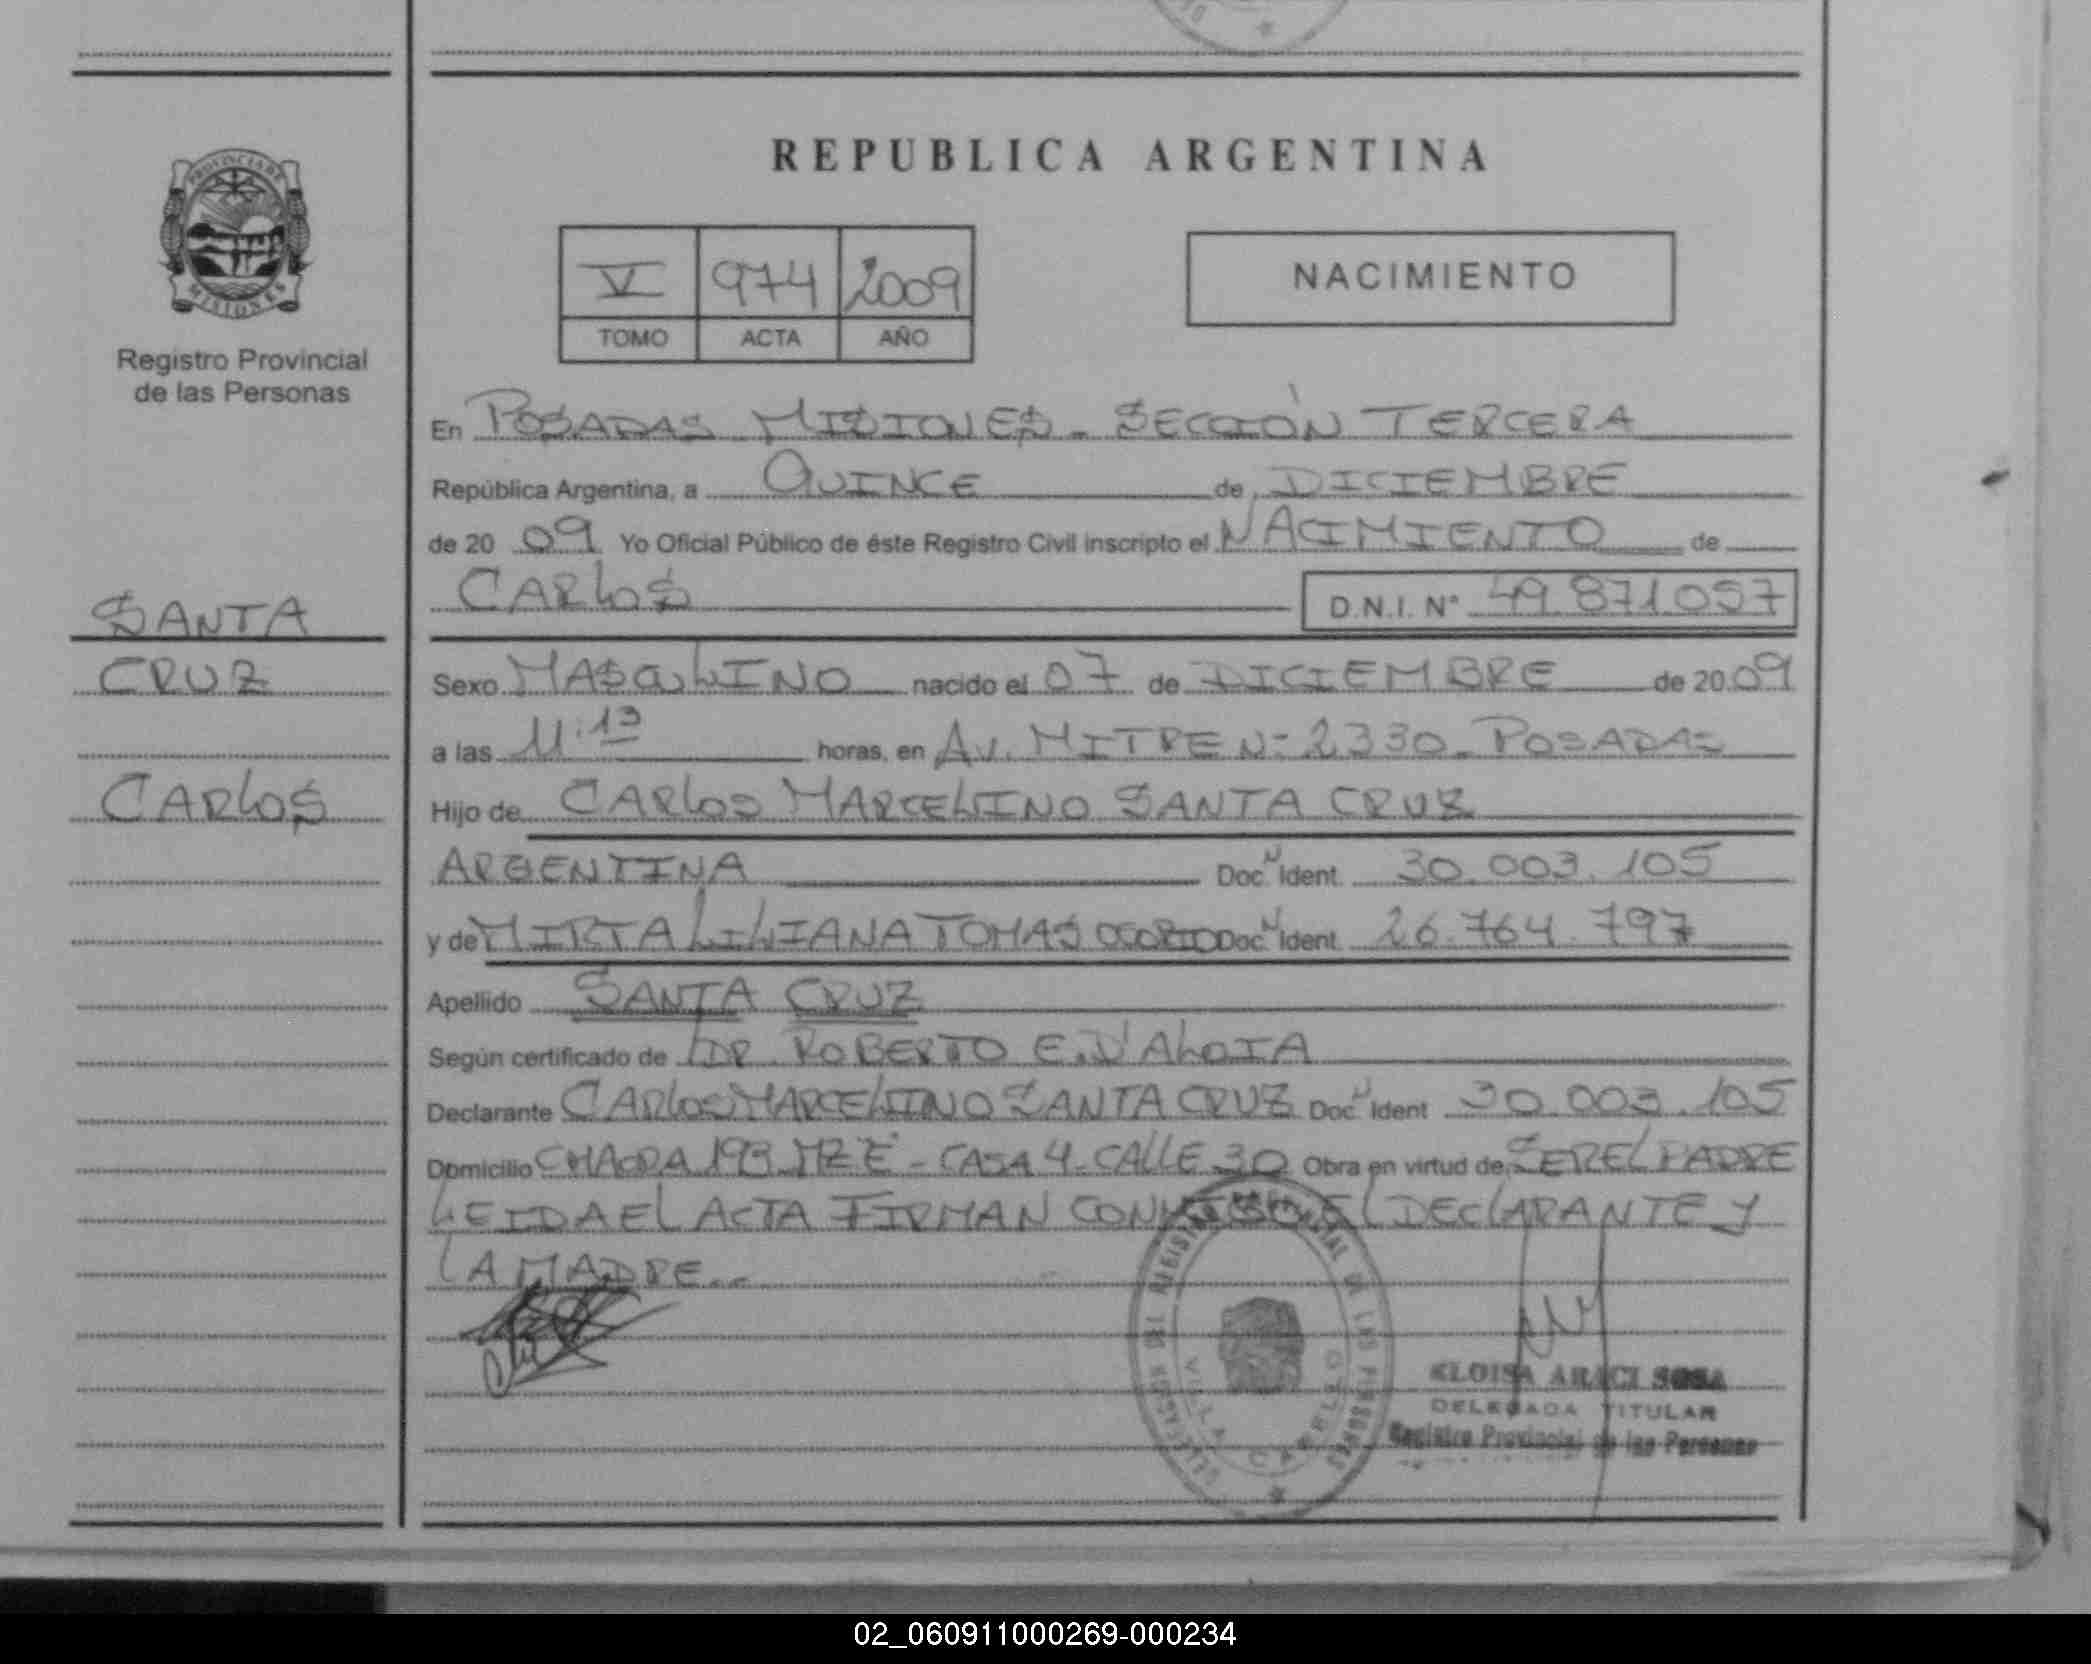 REPUBLICA ARGENTINA
PROVINCIA DE MISIONES
Registro Provincial
de las Personas
V 974 2009
TOMO ACTA AÑO
NACIMIENTO
En POSADAS MISIONES - SECCIÓN TERCERA
República Argentina, a QUINCE de DICIEMBRE
de 20 09 Yo Oficial Público de éste Registro Civil inscripto el NACIMIENTO de
CARLOS D.N.I. Nº 49.871.057
SANTA
CRUZ
CARLOS
Sexo MASCULINO nacido el 07 de DICIEMBRE de 20 09
a las 11:13 horas, en AV. MITRE Nº 2330 - POSADAS
Hijo de CARLOS MARCELINO SANTA CRUZ
ARGENTINA Doc. Ident. 30.003.105
y de MIRTA LILIANA TOMAS OSORIO Doc. Ident. 26.764.797
Apellido SANTA CRUZ
Según certificado de DR. ROBERTO E. D'ALOIA
Declarante CARLOS MARCELINO SANTA CRUZ Doc. Ident 30.003.105
Domicilio CHACRA 193 MZ E - CASA 4 - CALLE 30 Obra en virtud de SER EL PADRE
LEIDA EL ACTA FIRMAN CONMIGO EL DECLARANTE Y
LA MADRE..-
DELEGACION DEL REGISTRO PROVINCIAL DE LAS PERSONAS
VILLA CABELLO
ELOISA ARACI SOSA
DELEGADA TITULAR
Registro Provincial de las Personas
02_060911000269-000234